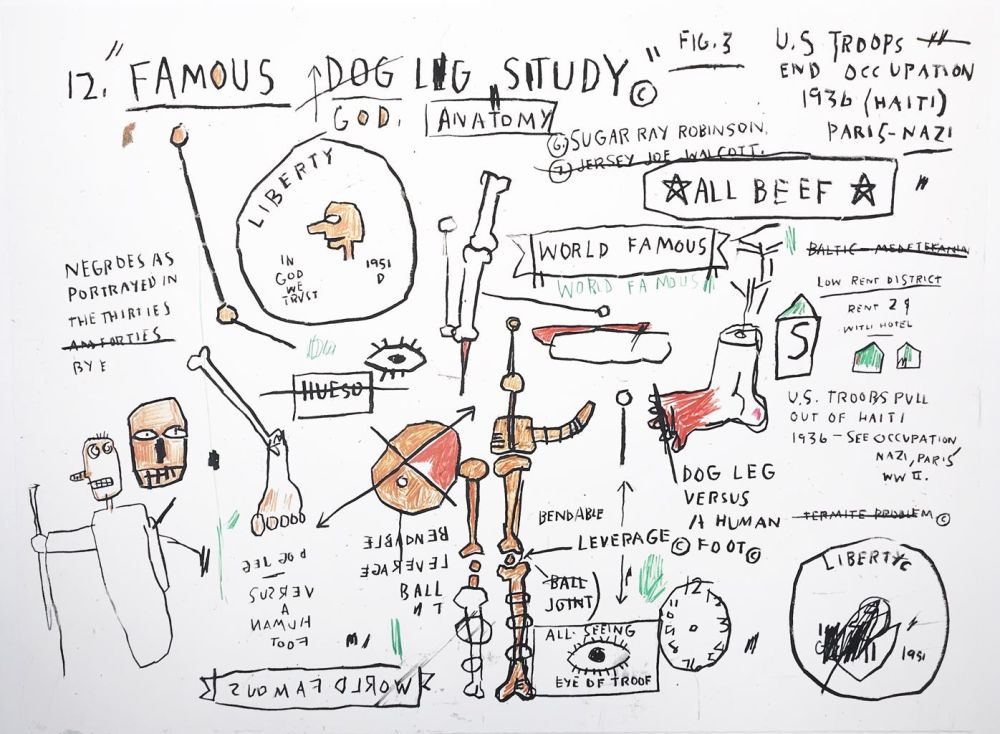 12. "FAMOUS DOG LEG STUDY" ©
GOD. ANATOMY
FIG. 3
U.S TROOPS
END OCCUPATION
1936 (HAITI)
PARIS-NAZI
6. SUGAR RAY ROBINSON.
7. JERSEY JOE WALCOTT.
ALL BEEF
LIBERTY
IN
GOD
WE
TRVST
1951
D
WORLD FAMOUS
WORLD FAMOUS
NEGROES AS
PORTRAYED IN
THE THIRTIES
AND FORTIES
BY E
HUESO
LOW RENT DISTRICT
RENT 2 9
WITH HOTEL
S
U.S. TROOPS PULL
OUT OF HAITI
1936 - SEE OCCUPATION
NAZI, PARIS
WW II.
TERMITE PROBLEM ©
DOG LEG
VERSUS
A HUMAN
© FOOT ©
BENDABLE
LEVERAGE
BALL
JOINT)
DOG LEG
VERSUS
A
HUMAN
FOOT
BENDABLE
LEVERAGE
BALL
N T
ALL-SEEING
EYE OF TROOF
12
LIBERTY
1951
WORLD FAMOUS